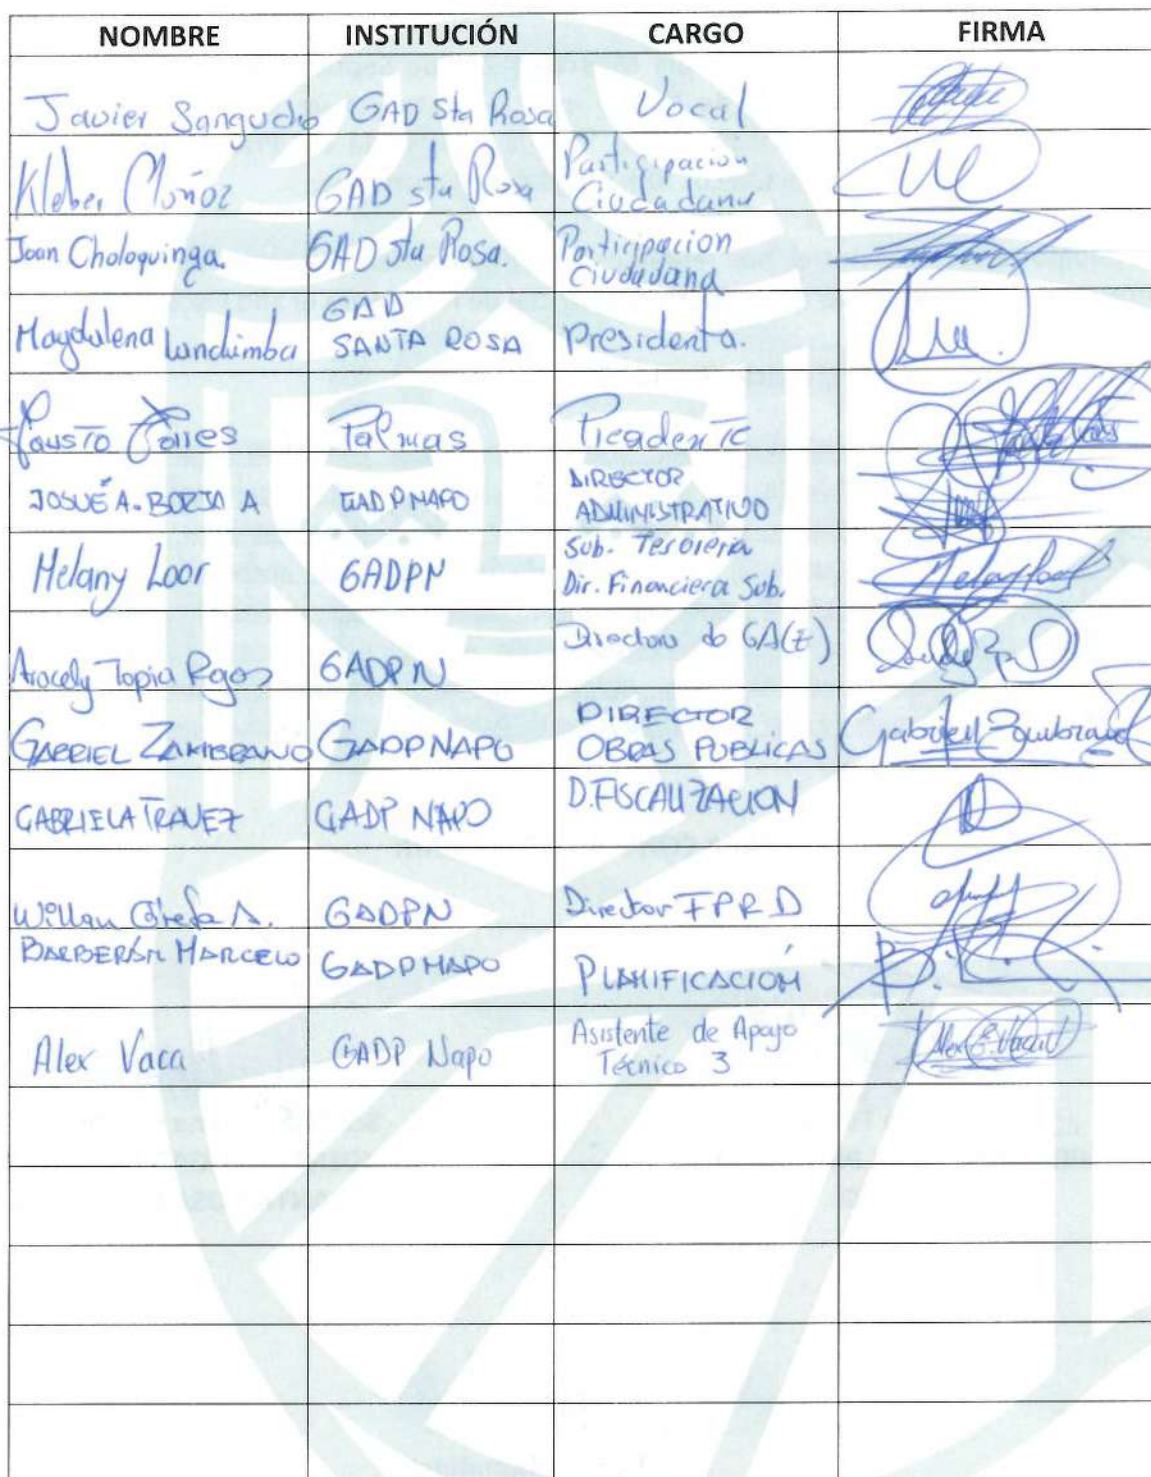 NOMBRE INSTITUCIÓN CARGO FIRMA
Javier Sangucho GAD Sta Rosa Vocal
Kleber Muñoz GAD sta Rosa Participación
Ciudadana
Joan Choloquinga. GAD Sta Rosa. Participacion
Ciudadana
Magdalena Lanchimba GAD
SANTA ROSA Presidenta.
Fausto Torres Palmas
JOSUÉ A. BORJA A GADPNAPO DIRECTOR
ADMINISTRATIVO
Melany Loor GADPN Sub. Tesoreria
Dir. Financiera Sub.
Aracely Tapia GADPN
GABRIEL ZAMBRANO GADPNAPO DIRECTOR
OBRAS PUBLICAS Gabriel Zambrano
GABRIELA TRAVEZ GADP NAPO D.FISCALIZACION
Willan Grefa A. GADPN Director FPRD
BARBERÁN MARCELO GADPNAPO PLANIFICACIÓN
Alex Vaca GADP Napo Asistente de Apoyo
Técnico 3